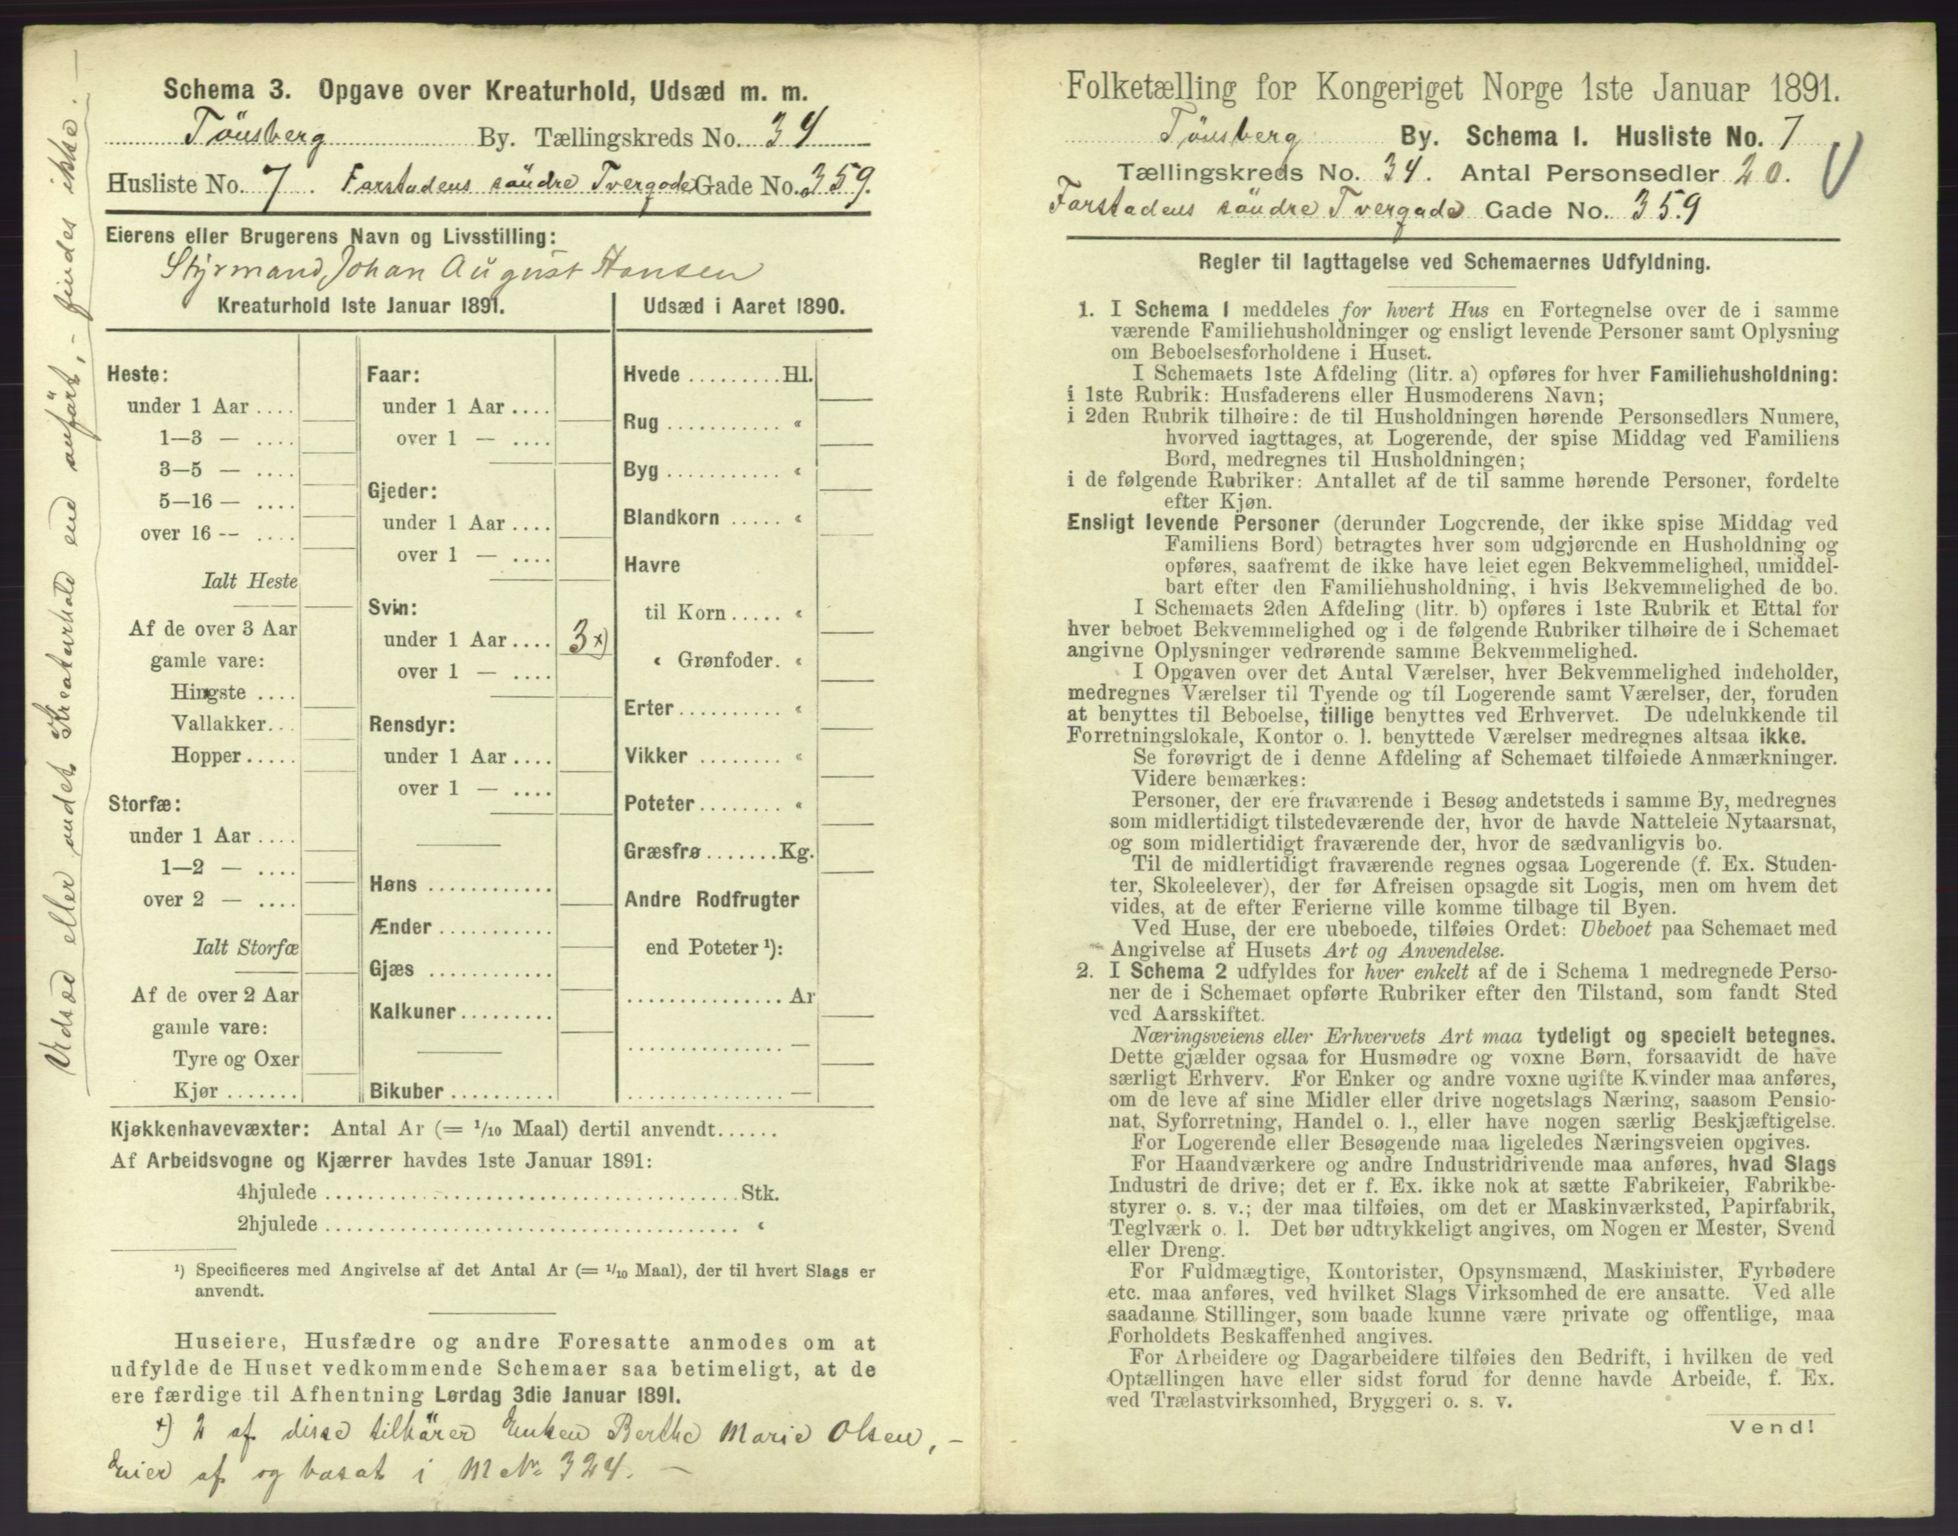 Schema 3. Opgave over Kreaturhold, Udsæd m. m.
Tönsberg By. Tællingskreds No. 34
Husliste No. 7. Farstadens söndre Tvergade Gade No. 359.
Eierens eller Brugerens Navn og Livsstilling:
Styrmand, Johan August Hansen
Kreaturhold 1ste Januar 1891.
Heste:
under 1 Aar ....
1—3 — ....
3—5 — ....
5—16 — ....
over 16 -- ....
Ialt Heste
Af de over 3 Aar
gamle vare:
Hingste ....
Vallakker...
Hopper.....
Storfæ:
under 1 Aar ....
1—2 — ....
over 2 — ....
Ialt Storfæ
Af de over 2 Aar
gamle vare:
Tyre og Oxer
Kjør .......
Faar:
under 1 Aar ....
over 1 — ....
Gjeder:
under 1 Aar ....
over 1 — ....
Svin:
under 1 Aar .... 3 x)
over 1 — ....
Rensdyr:
under 1 Aar ....
over 1 — ....
Høns ............
Ænder...........
Gjæs ............
Kalkuner.........
Bikuber ..........
Udsæd i Aaret 1890.
Hvede .........Hl.
Rug ........... “
Byg ........... “
Blandkorn ..... “
Havre
til Korn..... “
“ Grønfoder. “
Erter.......... “
Vikker ........ “
Poteter........ “
Græsfrø.......Kg.
Andre Rodfrugter
end Poteter ¹):
............... Ar
............... —
............... —
Kjøkkenhavevæxter: Antal Ar (= 1/10 Maal) dertil anvendt......
Af Arbeidsvogne og Kjærrer havdes 1ste Januar 1891:
4hjulede ........................................Stk.
2hjulede ........................................ “
¹) Specificeres med Angivelse af det Antal Ar (= 1/10 Maal), der til hvert Slags er
anvendt.
Huseiere, Husfædre og andre Foresatte anmodes om at
udfylde de Huset vedkommende Schemaer saa betimeligt, at de
ere færdige til Afhentning Lørdag 3die Januar 1891.
x) 2 af disse tilhörer Enken Berthe Marie Olsen, —
Eier af og bosat i M № 324. —
Udsæd eller andet Kreaturhold end anfört, - findes ikke. —
Folketælling for Kongeriget Norge 1ste Januar 1891.
Tönsberg By. Schema I. Husliste No. 7
Tællingskreds No. 34. Antal Personsedler 20.
Farstadens söndre Tvergade Gade No. 359
Regler til Iagttagelse ved Schemaernes Udfyldning.
1. I Schema I meddeles for hvert Hus en Fortegnelse over de i samme
værende Familiehusholdninger og ensligt levende Personer samt Oplysning
om Beboelsesforholdene i Huset.
I Schemaets 1ste Afdeling (litr. a) opføres for hver Familiehusholdning:
i 1ste Rubrik: Husfaderens eller Husmoderens Navn;
i 2den Rubrik tilhøire: de til Husholdningen hørende Personsedlers Numere,
hvorved iagttages, at Logerende, der spise Middag ved Familiens
Bord, medregnes til Husholdningen;
i de følgende Rubriker: Antallet af de til samme hørende Personer, fordelte
efter Kjøn.
Ensligt levende Personer (derunder Logerende, der ikke spise Middag ved
Familiens Bord) betragtes hver som udgjørende en Husholdning og
opføres, saafremt de ikke have leiet egen Bekvemmelighed, umiddel-
bart efter den Familiehusholdning, i hvis Bekvemmelighed de bo.
I Schemaets 2den Afdeling (litr. b) opføres i 1ste Rubrik et Ettal for
hver beboet Bekvemmelighed og i de følgende Rubriker tilhøire de i Schemaet
angivne Oplysninger vedrørende samme Bekvemmelighed.
I Opgaven over det Antal Værelser, hver Bekvemmelighed indeholder,
medregnes Værelser til Tyende og til Logerende samt Værelser, der, foruden
at benyttes til Beboelse, tillige benyttes ved Erhvervet. De udelukkende til
Forretningslokale, Kontor o. l. benyttede Værelser medregnes altsaa ikke.
Se forøvrigt de i denne Afdeling af Schemaet tilføiede Anmærkninger.
Videre bemærkes:
Personer, der ere fraværende i Besøg andetsteds i samme By, medregnes
som midlertidigt tilstedeværende der, hvor de havde Natteleie Nytaarsnat,
og som midlertidigt fraværende der, hvor de sædvanligvis bo.
Til de midlertidigt fraværende regnes ogsaa Logerende (f. Ex. Studen-
ter, Skoleelever), der før Afreisen opsagde sit Logis, men om hvem det
vides, at de efter Ferierne ville komme tilbage til Byen.
Ved Huse, der ere ubeboede, tilføies Ordet: Ubeboet paa Schemaet med
Angivelse af Husets Art og Anvendelse.
2. I Schema 2 udfyldes for hver enkelt af de i Schema 1 medregnede Perso-
ner de i Schemaet opførte Rubriker efter den Tilstand, som fandt Sted
ved Aarsskiftet.
Næringsveiens eller Erhvervets Art maa tydeligt og specielt betegnes.
Dette gjælder ogsaa for Husmødre og voxne Børn, forsaavidt de have
særligt Erhverv. For Enker og andre voxne ugifte Kvinder maa anføres,
om de leve af sine Midler eller drive nogetslags Næring, saasom Pensio-
nat, Syforretning, Handel o. l., eller have nogen særlig Beskjæftigelse.
For Logerende eller Besøgende maa ligeledes Næringsveien opgives.
For Haandværkere og andre Industridrivende maa anføres, hvad Slags
Industri de drive; det er f. Ex. ikke nok at sætte Fabrikeier, Fabrikbe-
styrer o. s. v.; der maa tilføies, om det er Maskinværksted, Papirfabrik,
Teglværk o. l. Det bør udtrykkeligt angives, om Nogen er Mester, Svend
eller Dreng.
For Fuldmægtige, Kontorister, Opsynsmænd, Maskinister, Fyrbødere
etc. maa anføres, ved hvilket Slags Virksomhed de ere ansatte. Ved alle
saadanne Stillinger, som baade kunne være private og offentlige, maa
Forholdets Beskaffenhed angives.
For Arbeidere og Dagarbeidere tilføies den Bedrift, i hvilken de ved
Optællingen have eller sidst forud for denne havde Arbeide, f. Ex.
ved Trælastvirksomhed, Bryggeri o. s. v.
Vend!